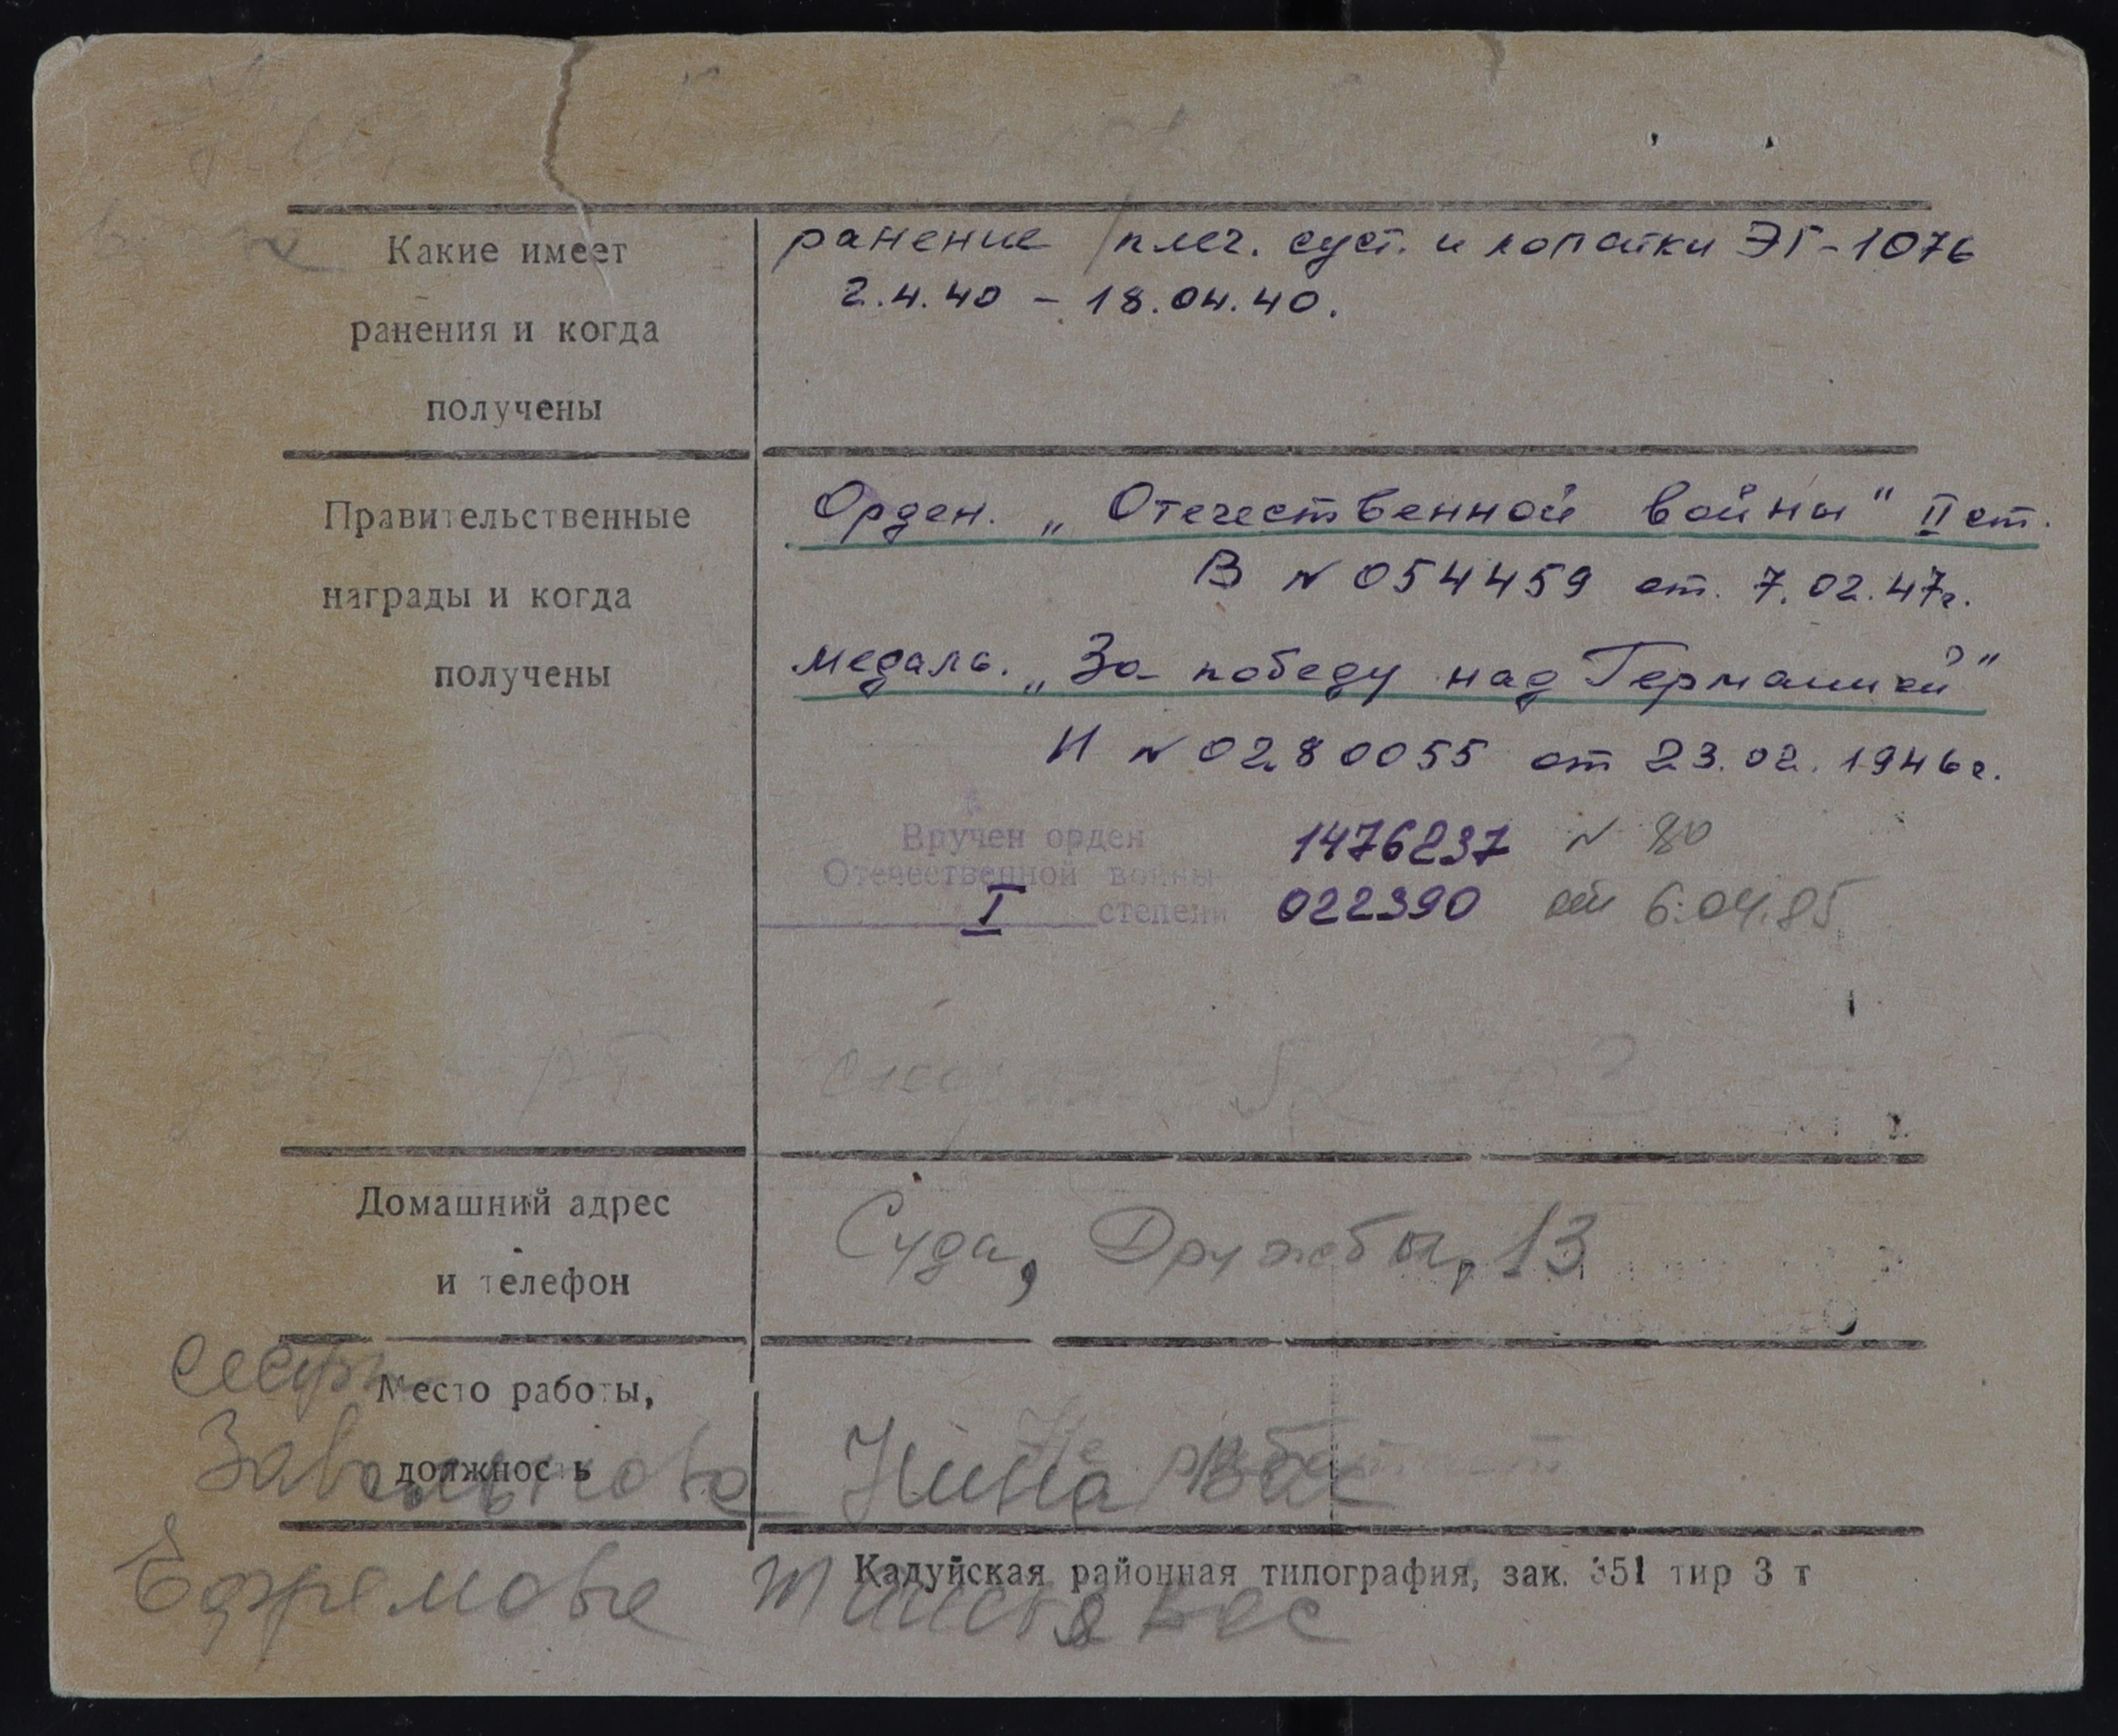 Какие имеет
ранения и когда
получены
ранение плеч. суст. и лопатки ЭГ-1076
2.4.40 – 18.04.40.
Правительственные
награды и когда
получены
Орден. „Отечественной войны" II ст.
В № 054459 от. 7.02.47г.
медаль. „За победу над Германией"
И № 0280055 от 23.02.1946г.
Вручен орден 1476237 № 80
Отечественной войны
I степени 022390 от 6.04.85
Домашний адрес
и телефон
Суда, Дружбы, 13
сестры
Место работы,
должность
Не работает
Нина Вас
Ефремова Вас
Кадуйская районная типография, зак. 351 тир 3 т